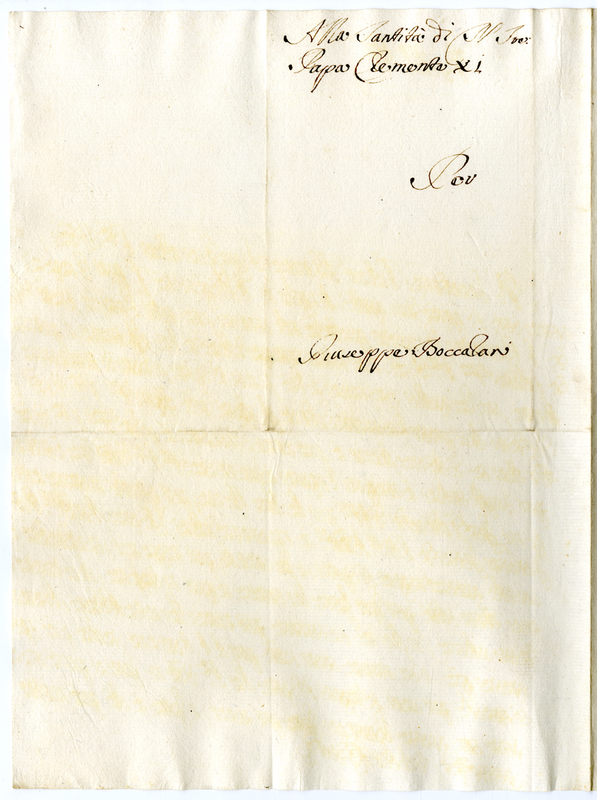 Alla Santità di N. Sre.
Papa Clemente XI.
Per
Giuseppe Boccalari